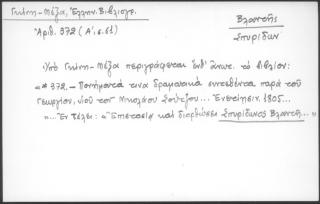 Γκίνη - Μέξα, Ἑλλην. Βιβλιογρ.
Βλαντῆς
Ἀριθ. 372 (Α', σ. 61)
Σπυρίδων
Ὑπὸ Γκίνη - Μέξα περιγράφεται ὑπ' ἀριθ. τὸ βιβλίον:
«* 372. - Ποιήματά τινα δραματικὰ συντεθέντα παρὰ τοῦ
Γεωργίου, υἱοῦ τοῦ Νικολάου Σούτζου... Ἐνετίησιν, 1805...
»... Ἐν τέλει: «Ἐπιστασίᾳ καὶ διορθώσει Σπυρίδωνος Βλαντῆ... »